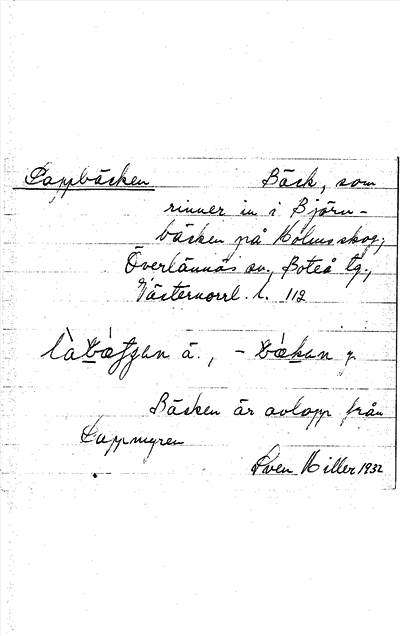 Lappbäcken Bäck, som
rinner in i Björn-
bäcken på Holms skog,
Överlännäs sn., Boteå tg.,
Västernorrl. l. 112
ä., - y.
Bäcken är avlopp från
Lappmyren
Sven Hiller 1932